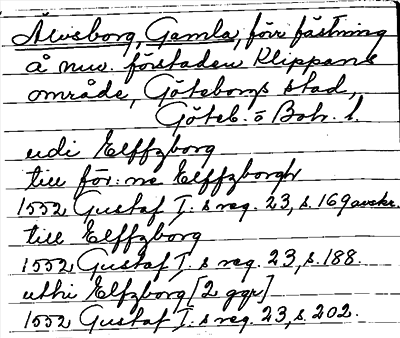 Älvsborg, Gamla, förr fästning
å nuv. förstaden Klippans
område, Göteborgs stad,
Göteb. o Boh. l.
udi Elffzborg
till för:ne Elffzborgh
1552 Gustaf I:s reg. 23, s. 169 avskr.
till Elffzborg
1552 Gustaf I:s reg. 23, s. 188.
uthi Elfzborg [2 ggr]
1552 Gustaf I:s reg. 23, s. 202.